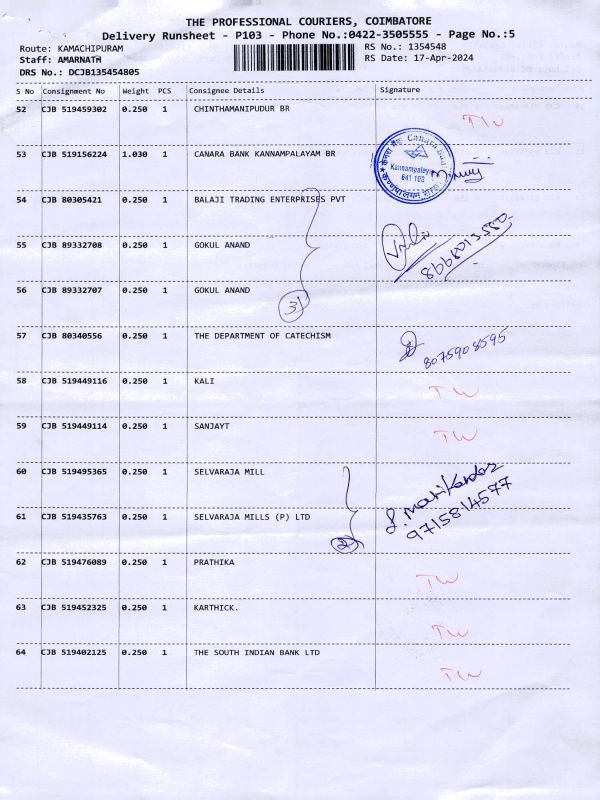 THE PROFESSIONAL COURIERS, COIMBATORE
Delivery Runsheet - P103 - Phone No.:0422-3505555 - Page No.:5
Route: KAMACHIPURAM
RS No.: 1354548
Staff: AMARNATH
RS Date: 17-Apr-2024
DRS No.: DCJB135454805
S No Consignment No Weight PCS Consignee Details Signature
52 CJB 519459302 0.250 1 CHINTHAMANIPUDUR BR
TW
53 CJB 519156224 1.030 1 CANARA BANK KANNAMPALAYAM BR
केनरा बैंक Canara Bank
Kannampalayam
641 103
54 CJB 80305421 0.250 1 BALAJI TRADING ENTERPRISES PVT
55 CJB 89332708 0.250 1 GOKUL ANAND
56 CJB 89332707 0.250 1 GOKUL ANAND
3)
57 CJB 80340556 0.250 1 THE DEPARTMENT OF CATECHISM
8075908595
58 CJB 519449116 0.250 1 KALI
TW
59 CJB 519449114 0.250 1 SANJAYT
TW
60 CJB 519495365 0.250 1 SELVARAJA MILL
S. Manikandan
61 CJB 519435763 0.250 1 SELVARAJA MILLS (P) LTD
9715814577
2
62 CJB 519476089 0.250 1 PRATHIKA
TW
63 CJB 519452325 0.250 1 KARTHICK.
TW
64 CJB 519402125 0.250 1 THE SOUTH INDIAN BANK LTD
TW